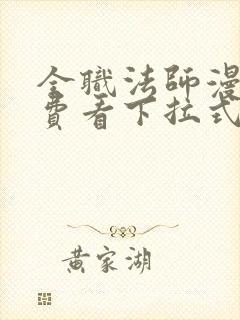 全職法師漫
費看下拉式
黃家湖